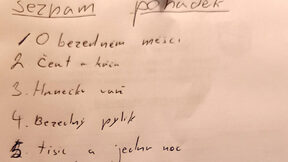 Seznam pohádek
1 O bezedném měšci
2. Čert a Káča
3. Hrnečku vař
4. Bezedný pytlík
5 Tisíc a jedna noc